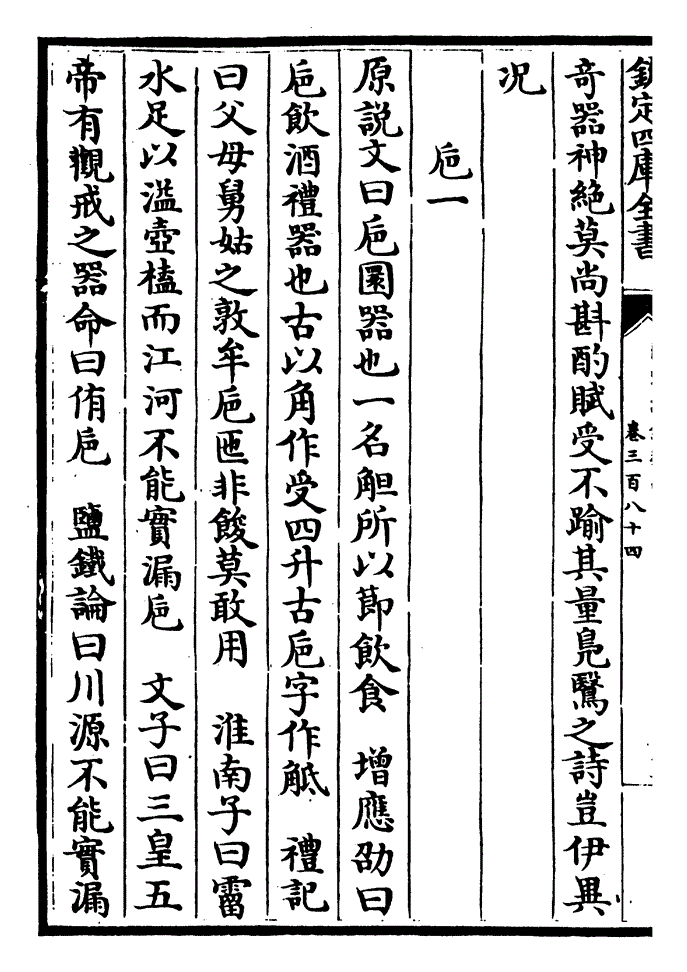 欽定四庫全書
卷三百八十四
奇器神絶莫尚斟酌賦受不踰其量鳬鷖之詩豈伊異
况
卮一
原説文曰卮圜器也一名觛所以莭飲食　增應劭曰
卮飲酒禮器也古以角作受四升古卮字作觝　禮記
曰父母舅姑之敦牟卮匜非餕莫敢用　淮南子曰霤
水足以溢壺榼而江河不能實漏卮　文子曰三皇五
帝有觀戒之器命曰侑卮　鹽鐵論曰川源不能實漏